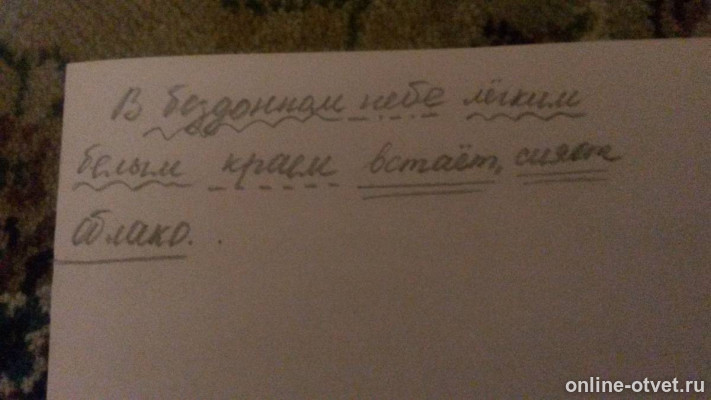 В бездонном небе лёгким
белым краем встаёт, сияет
облако.
online-otvet.ru